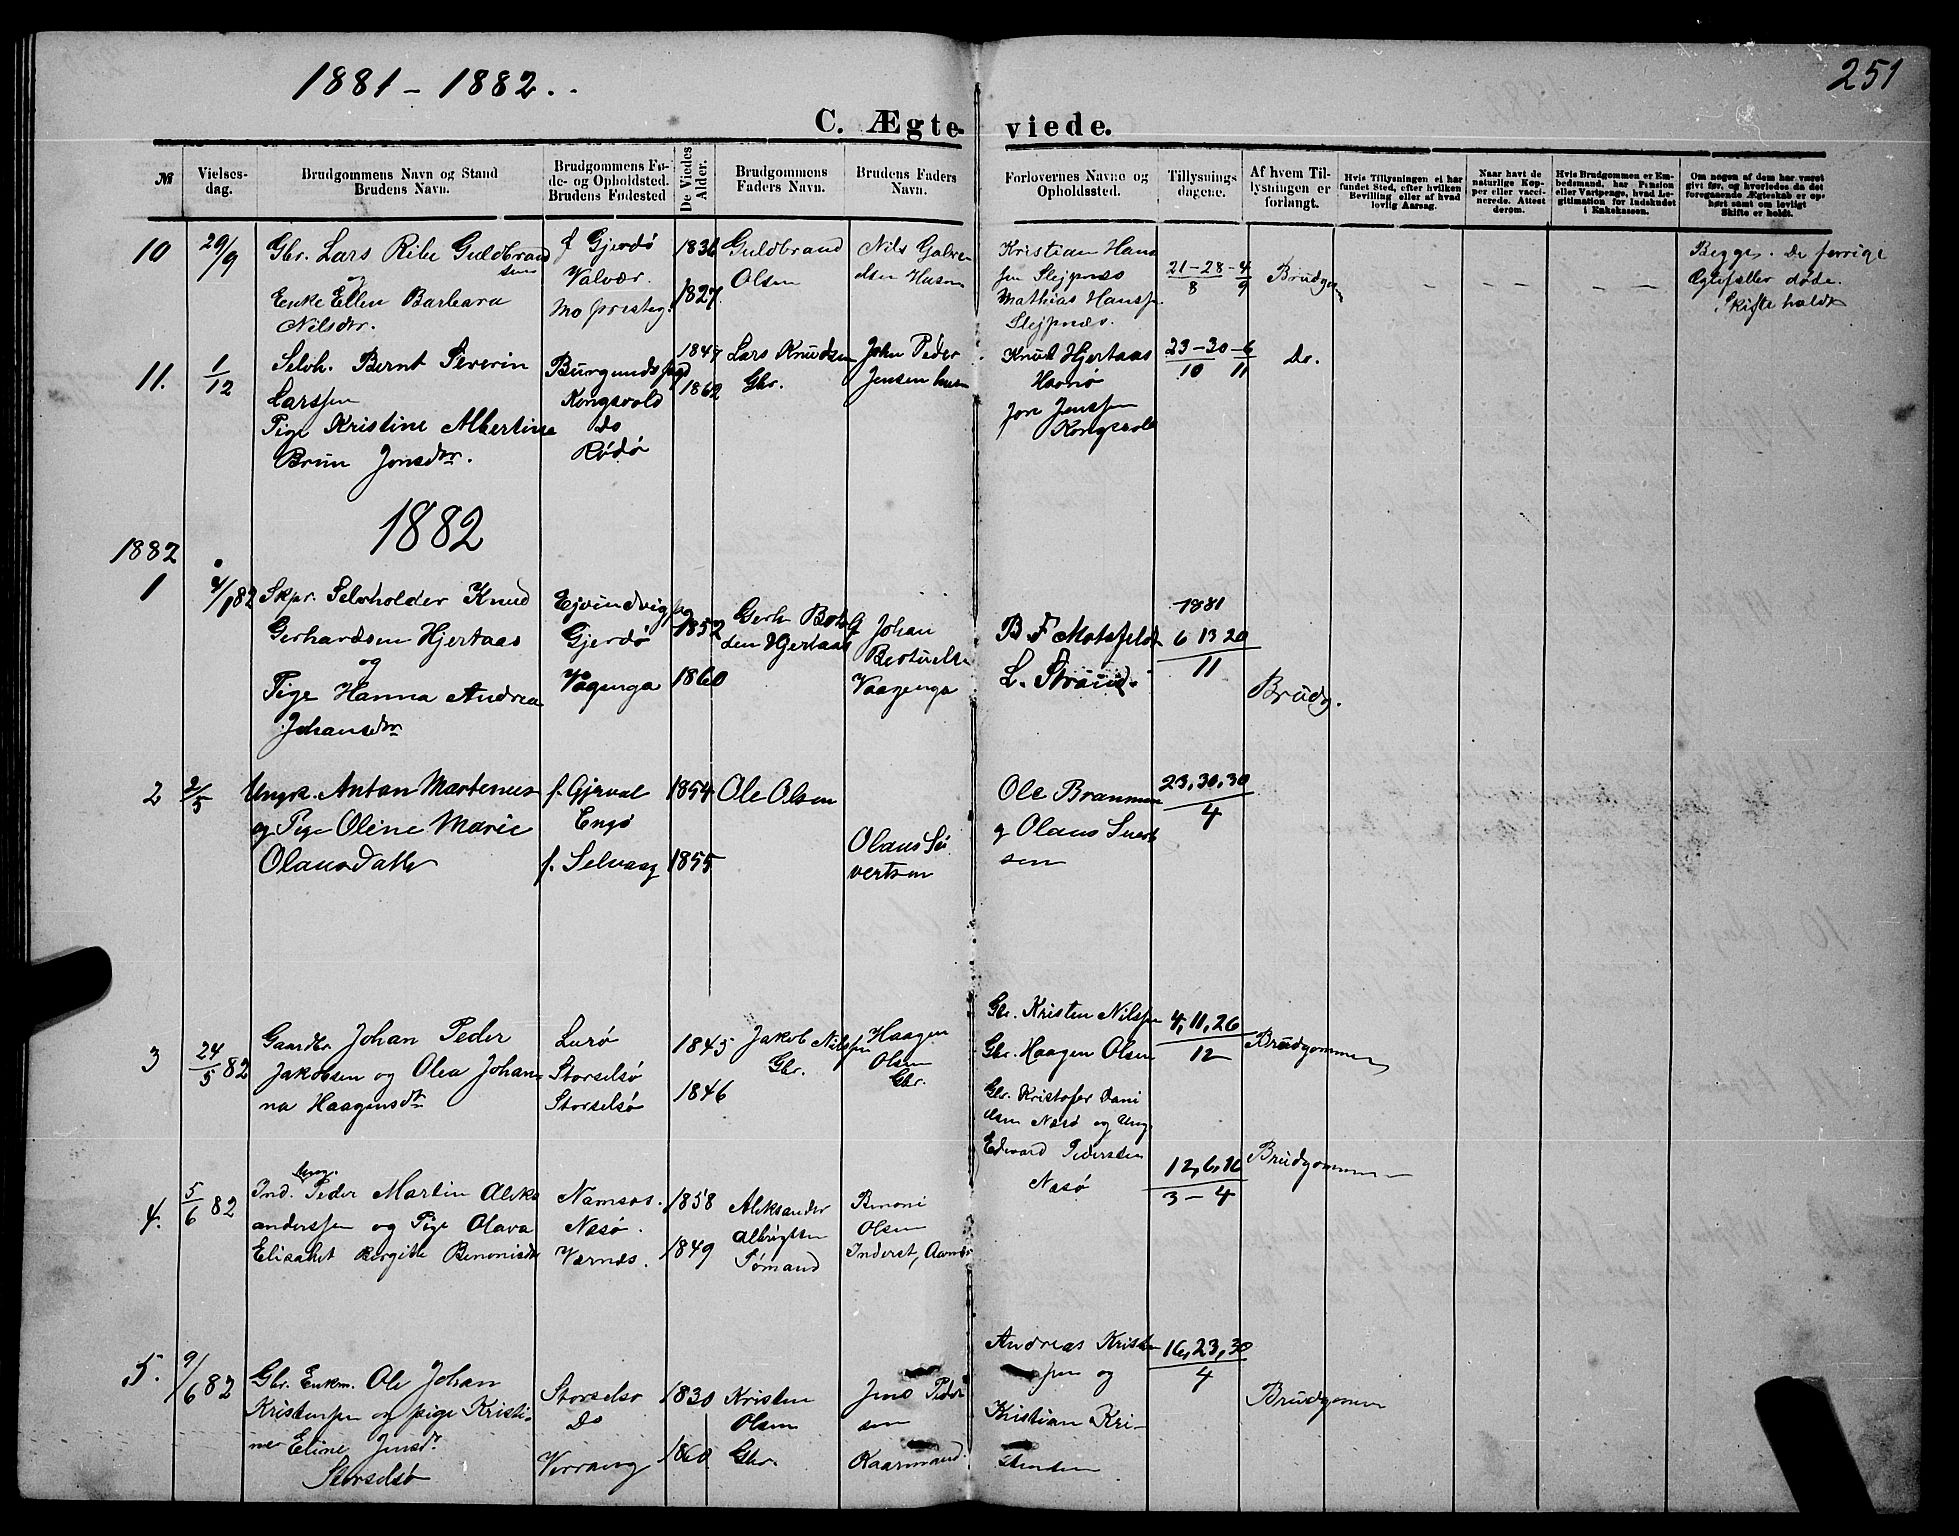 1881 - 1882.
251
C. Ægteviede.
№
Vielsesdag.
Brudgommens Navn og Stand
Brudens Navn.
Brudgommens Føde- og Opholdsted.
Brudens Fødested
De Viedes Alder.
Brudgommens Faders Navn.
Brudens Faders Navn.
Forlovernes Navne og Opholdssted.
Tillysningsdagene.
Af hvem Tillysningen er forlangt.
Hvis Tillysningen ei har fundet Sted, efter hvilken Bevilling eller af hvad lovlig Aarsag.
Naar havt de naturlige Kopper eller vaccinerede. Attest derom.
Hvis Brudgommen er Embedsmand, har Pension eller Vartpenge, hvad Legitimation for Indskudet i Enkekassen.
Om nogen af dem har været givt før, og hvorledes da det foregaaende Ægteskab er ophørt samt om lovligt Skifte er holdt.
10
29/9
Gbr. Lars Ribe Guldbrandsen
og
Enke Ellen Barbara
Nilsdtr.
f Gjerdø
Valvær.
Mo præsteg.
1836
1827.
Guldbrand
Olsen
Nils
Kristian Hans
sen Slejpnæs
Mathias Hanss.
Slejpnæs.
21-28-4
8 9
Brudgom
Begge. De forrige
Egtefæller døde.
Skifte holdt
11.
1/12
Selvh. Bernt Severin
Larssen
Pige Kristine Albertine
Brun Jonsdtr.
Kongsvold
do
Rødø
1847
1862
Lars Knudsen
Gbr.
John Peder
Jensen
Knut Hjertaas
Havnø
Jon Jenssen
Kongsvold
23-30-6
10 11
Do.
1882
1882
1
4/1 82
Skpr. Selvholder Knud
Gerhardsen Hjertaas
og
Pige Hanna Andrea
Johansdtr
Ejvindvig
Gjerdø
Vågenga
1852
1860
Gerh
den Hjertaas
Johan
Bertuels
Vaagenga
B F Motzfeldt
L. Strøm.
1881
6 13 20
11
Brudg.
2
2/5
Ungk. Anton Martenius
og Pige Oline Marie
Olausdatter
f. Gjerval
Engø
f. Selvaag
1854
1855
Ole Olsen
Olaus Si
vertsen
Ole Branmen
g Olaus Sivert
sen
23, 30, 30
4
3
24/5 82
Gaardbr. Johan Peder
Jakobsen og Olea Johan
na Haagensdtr
Lurø
Storselsø
Storselsø
1845
1846
Jakob Nilssen
Gbr.
Haagen
Olsen
Gbr.
Gbr. Kristen Nilssen
Gbr. Haagen Olsen
4, 11, 26
12
Brudgommen
4.
5/6 82
Ind. Ung. Peder Martin Aleks
anderssen og Pige Olava
Elisabet Bergitte Benonisdtr
Namsos.
Næsø.
Værnæs.
1858
1849
Aleksander
Albrigtsen
Sømand
Benoni
Olsen
Inderst, Aamnes
Gbr. Kristofer Dani
elsen Næsø og Ung.
Edevard Pedersen
Næsø
12, 6, 16
3 - 4
Brudgommen
5.
9/6 82
Gbr. Enkm. Ole Johan
Kristenssen og pige Kristi-
ne Eline Jensdtr
Storselsø
Storselsø
Do
1830
1860
Kristen
Olsen
Gbr.
Jens Peder
sen
Kaarmand
Andreas Kristen
ssen og
Kristian Kri-
stensen
16, 23, 30
4
Brudgommen